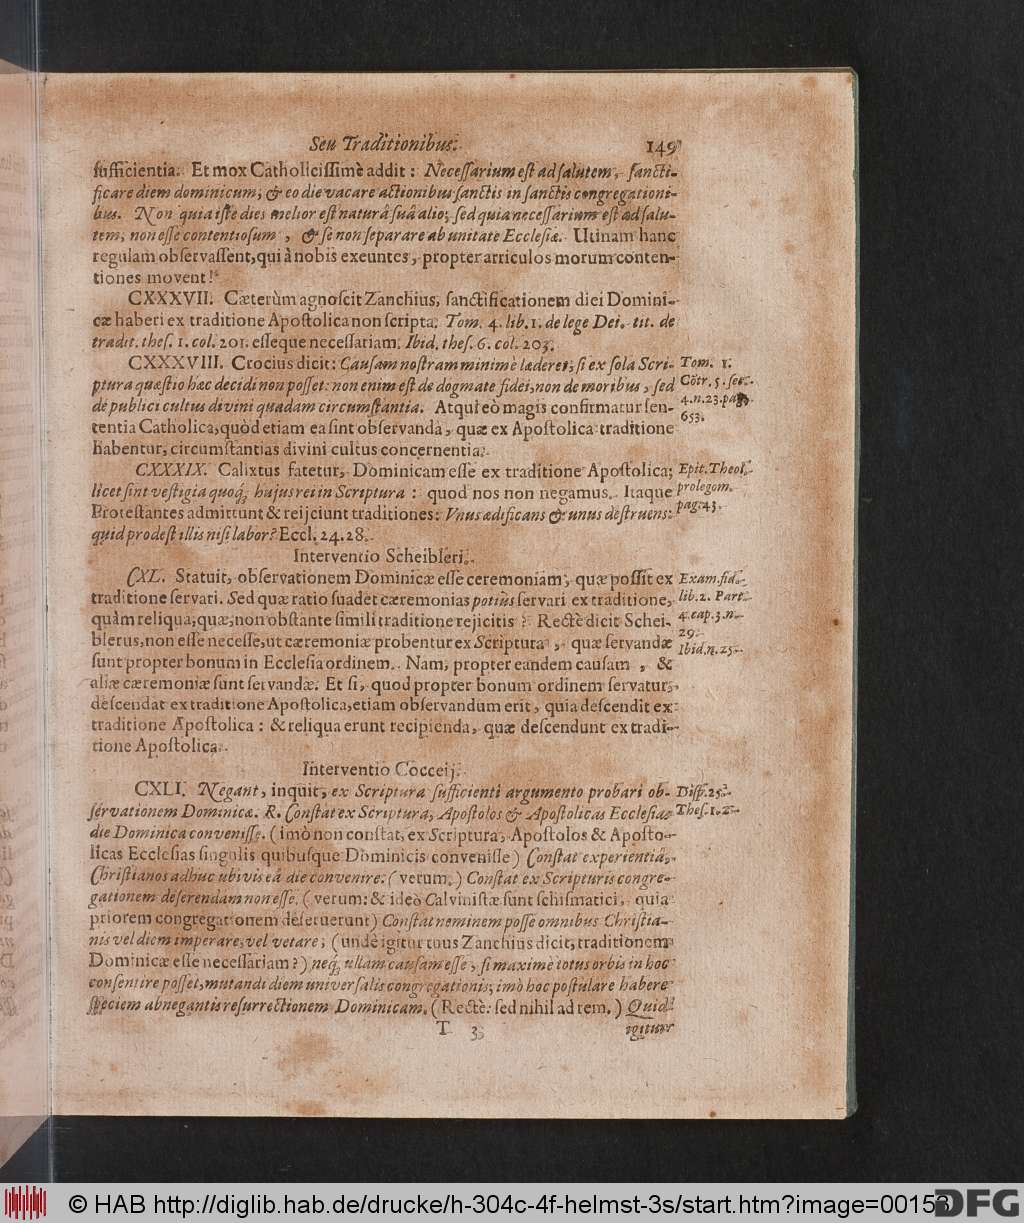 Seu Traditionibus. 149
ſufficientia. Et mox Catholiciſſimè addit: Neceſſarium eſt ad ſalutem, ſancti-
ficare diem dominicum, & eo die vacare actionibus ſanctis in ſanctis congregationi-
bus. Non quia iſte dies melior eſt naturâ ſuâ alio; ſed quia neceſſarium eſt ad ſalu-
tem, non eſſe contentioſum, & ſe non ſeparare ab unitate Eccleſiæ. Utinam hanc
regulam obſervaſſent, qui à nobis exeuntes, propter articulos morum conten-
tiones movent!
CXXXVII. Cæterùm agnoſcit Zanchius, ſanctificationem diei Domini-
cæ haberi ex traditione Apoſtolica non ſcripta. Tom. 4. lib. 1. de lege Dei. tit. de
tradit. theſ. 1. col. 201. eſſeque neceſſariam. Ibid. theſ. 6. col. 203.
CXXXVIII. Crocius dicit: Cauſam noſtram minimè læderet, ſi ex ſola Scri- Tom. 1.
ptura quæſtio hæc decidi non poſſet: non enim eſt de dogmate fidei, non de moribus, ſed Cōtr. 5. ſec.
de publici cultus divini quadam circumſtantia. Atqui eò magis confirmatur ſen- 4. n. 23. pag.
tentia Catholica, quòd etiam ea ſint obſervanda, quæ ex Apoſtolica traditione 653.
habentur, circumſtantias divini cultus concernentia.
CXXXIX. Calixtus fatetur, Dominicam eſſe ex traditione Apoſtolica; Epit. Theol.
licet ſint veſtigia quoq́; hujus rei in Scriptura: quod nos non negamus. Itaque prolegom.
Proteſtantes admittunt & reijciunt traditiones: Vnus ædificans & unus deſtruens: pag. 43.
quid prodeſt illis niſi labor? Eccl. 24. 28.
Interventio Scheibleri.
CXL. Statuit, obſervationem Dominicæ eſſe ceremoniam, quæ poſſit ex Exam. fid.
traditione ſervari. Sed quæ ratio ſuadet cæremonias potiùs ſervari ex traditione, lib. 2. Part.
quàm reliqua, quæ, non obſtante ſimili traditione rejicitis? Rectè dicit Schei- 4. cap. 3. n.
blerus, non eſſe neceſſe, ut cæremoniæ probentur ex Scriptura, quæ ſervandæ 29.
ſunt propter bonum in Eccleſia ordinem. Nam, propter eandem cauſam, & Ibid. n. 25.
aliæ cæremoniæ ſunt ſervandæ. Et ſi, quod propter bonum ordinem ſervatur,
deſcendat ex traditione Apoſtolica, etiam obſervandum erit, quia deſcendit ex
traditione Apoſtolica: & reliqua erunt recipienda, quæ deſcendunt ex tradi-
tione Apoſtolica.
Interventio Cocceij.
CXLI. Negant, inquit, ex Scriptura ſufficienti argumento probari ob- Diſp. 25.
ſervationem Dominicæ. R. Conſtat ex Scriptura, Apoſtolos & Apoſtolicas Eccleſias Theſ. 1. 2.
die Dominica conveniſſe. (imò non conſtat, ex Scriptura, Apoſtolos & Apoſto-
licas Eccleſias ſingulis quibuſque Dominicis conveniſſe) Conſtat experientiâ,
Chriſtianos adhuc ubivis eâ die convenire: (verum.) Conſtat ex Scripturis congre-
gationem deſerendam non eſſe. (verum: & ideò Calviniſtæ ſunt ſchiſmatici, quia
priorem congregationem deſeruerunt) Conſtat neminem poſſe omnibus Chriſtia-
nis vel diem imperare, vel vetare; (undè igitur tuus Zanchius dicit, traditionem
Dominicæ eſſe neceſſariam?) neq́; ullam cauſam eſſe, ſi maximè totus orbis in hoc
conſentire poſſet, mutandi diem univerſalis congregationis; imò hoc poſtulare habere
ſpeciem abnegantis reſurrectionem Dominicam. (Rectè: ſed nihil ad rem.) Quid
T 3 igitur
© HAB http://diglib.hab.de/drucke/h-304c-4f-helmst-3s/start.htm?image=00153
DFG